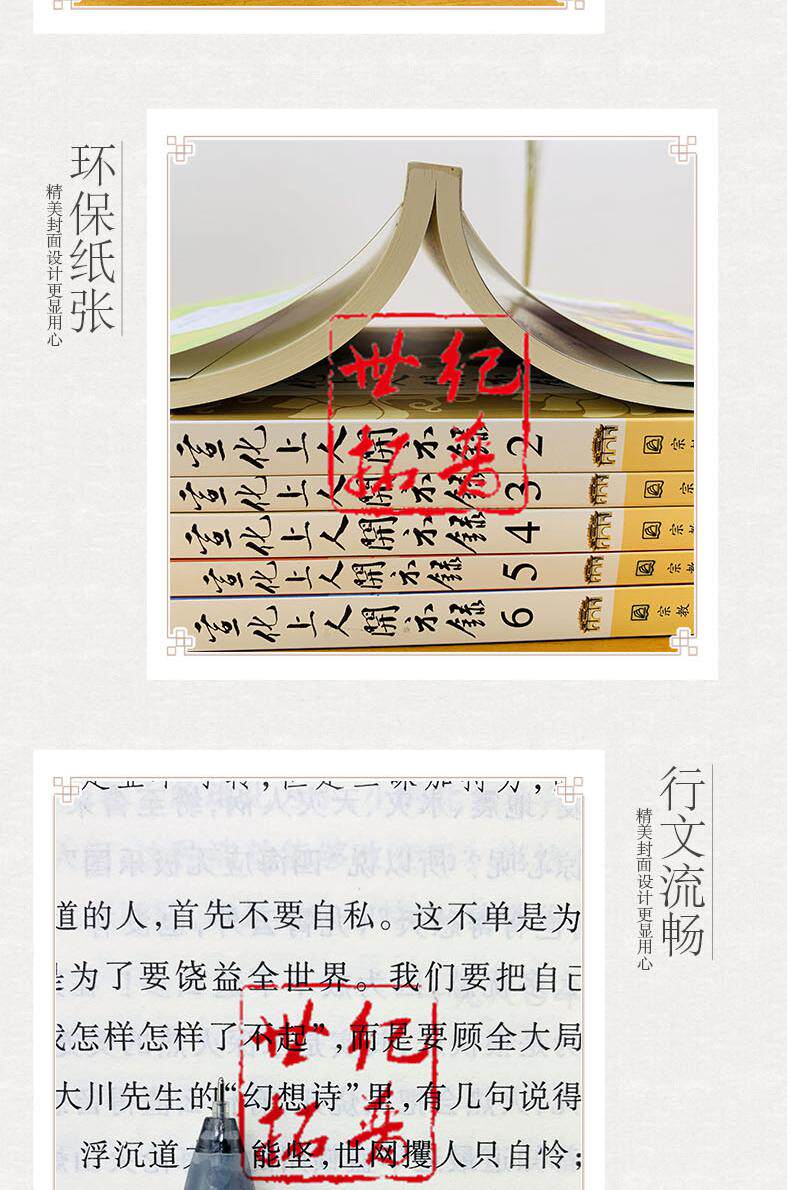 环保纸张
精美封面设计更显用心
世纪
拓普
宣化上人開示録 2 宗
宣化上人開示録 3 宗
宣化上人開示録 4 宗教
宣化上人開示録 5 宗教
宣化上人開示録 6 宗教
行文流畅
精美封面设计更显用心
道的人,首先不要自私。这不单是为
是为了要饶益全世界。我们要把自己
我怎样怎样了不起”,而是要顾全大局
大川先生的“幻想诗”里,有几句说得
浮沉道 能坚,世网攫人只自怜;
世纪
拓普